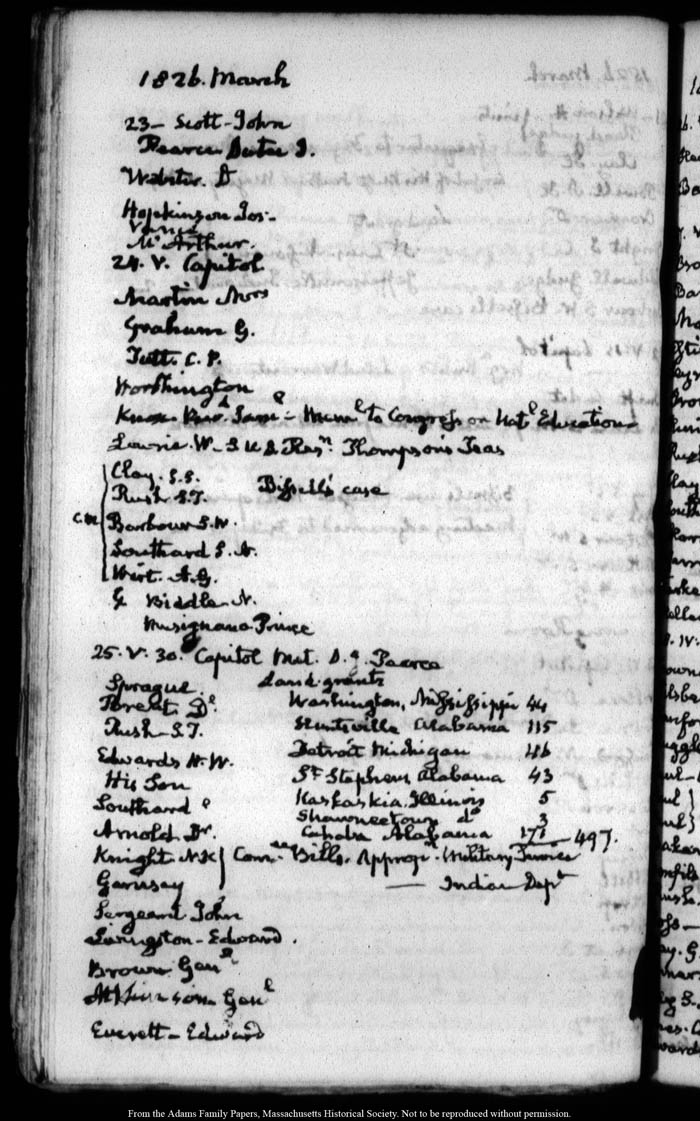 1826. March
23 - Scott - John
Pearce Dutee J.
Webster. D
Hopkinson Jos -
Vance
McArthur.
24. V. Capitol
Martin Mrs
Graham G.
Tutt. C. P.
Worthington
Knox. Revd. Saml - Meml to Congress on Natl Education
Lowrie. W - S U S Resn. Thompson's Teas
Clay. S.S. Bissell's case
Rush S.T.
C.M. Barbour S.W.
Southard S. N.
Wirt. A.G.
& Biddle. N.
Musignano Prince
25. V. 30. Capitol Met. D. J. Pearce
Sprague. Land grants
Forest Dl. Washington, Mississippi 44
Rush S.T. Huntsville Alabama 115
Edwards H. W. Detroit Michigan
His Son St Stephens Alabama 43
Southard Kaskaskia Illinois 5
Shawneetown do 3
Arnold Dr. Alabama 171 497.
Knight N.R Comee Bills. Appropn. Military Service
Garnsey — Indian Dept
Sergeant John
Livingston - Edward.
Brown Genl
Atkinson Genl
Everett - Edward
From the Adams Family Papers, Massachusetts Historical Society. Not to be reproduced without permission.